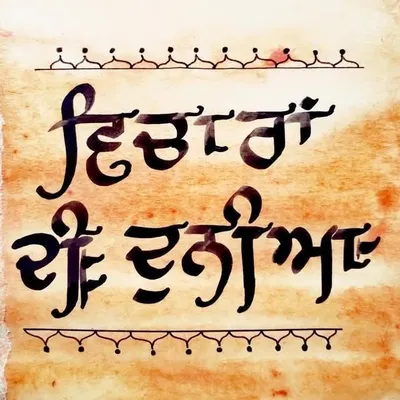 ਵਿਚਾਰਾਂ
ਦੀ ਦੁਨੀਆ